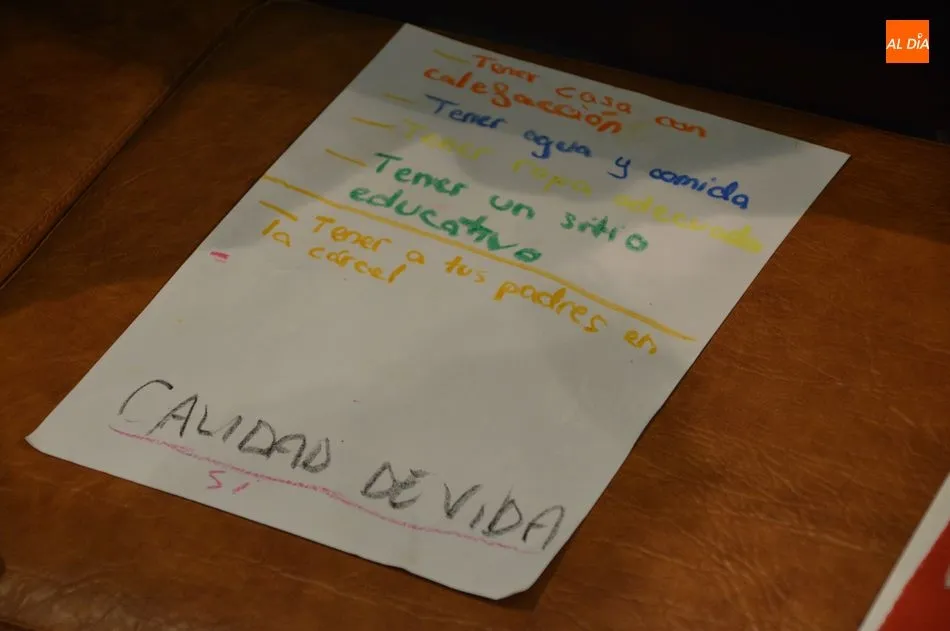 AL DÍA
- Tener casa con
calefacción
- Tener agua y comida
- Tener ropa adecuada
- Tener un sitio
educativo
- Tener a tus padres en
la cárcel
-
CALIDAD DE VIDA
SÍ